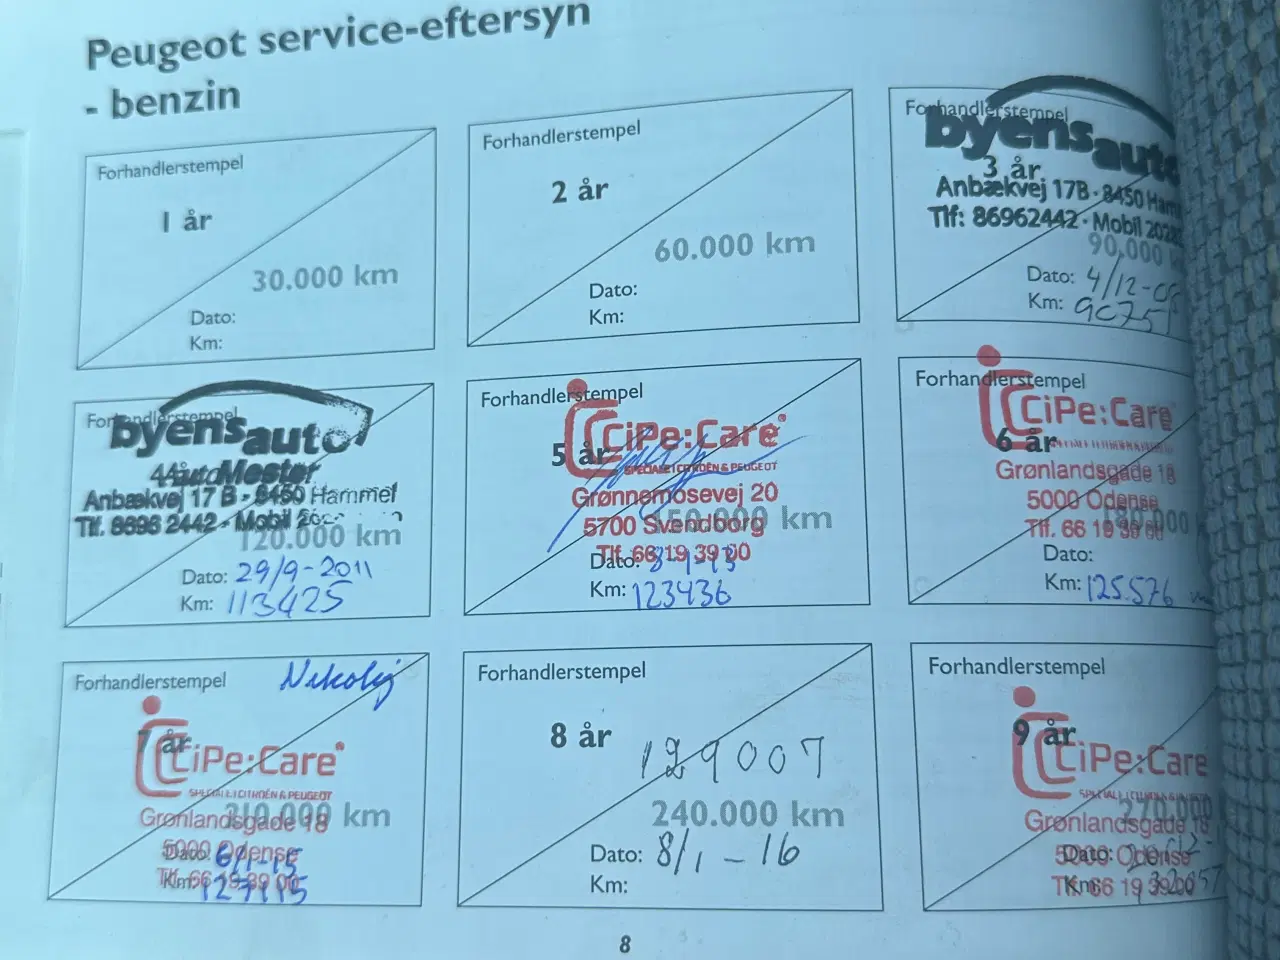 Peugeot service-eftersyn
- benzin
Forhandlerstempel
1 år
30.000 km
Dato:
Km:
Forhandlerstempel
2 år
60.000 km
Dato:
Km:
Forhandlerstempel
byensauto
3 år
Anbækvej 17B · 8450 Ham
Tlf: 86962442 · Mobil
90.000
Dato: 4/12-
Km:
Forhandlerstempel
byensauto
Mester
Anbækvej 17 B - 8450 Hammel
Tlf. 8696 2442 - Mobil
120.000 km
Dato: 29/9-2011
Km: 113425
Forhandlerstempel
CiPe:Care
5 år
SPECIALE I CITROËN & PEUGEOT
Grønnemosevej 20
5700 Svendborg
150.000 km
Tlf. 66 19 39 00
Dato: 8-1-13
Km: 123436
Forhandlerstempel
CiPe:Care
6 år
Grønlandsgade 18
5000 Odense
Tlf. 66 19 39 00
Dato:
Km: 125.576
Forhandlerstempel
Nikolaj
7 år
CiPe:Care
SPECIALE I CITROËN & PEUGEOT
210.000 km
Grønlandsgade 18
5000 Odense
Dato: 6/1-15
Tlf. 66 19 39 00
Km: 127115
Forhandlerstempel
8 år
129007
240.000 km
Dato: 8/1-16
Km:
Forhandlerstempel
9 år
CiPe:Care
270.000
Grønlandsgade 18
5000 Odense
Dato:
Tlf. 66 19 39 00
Km:
8